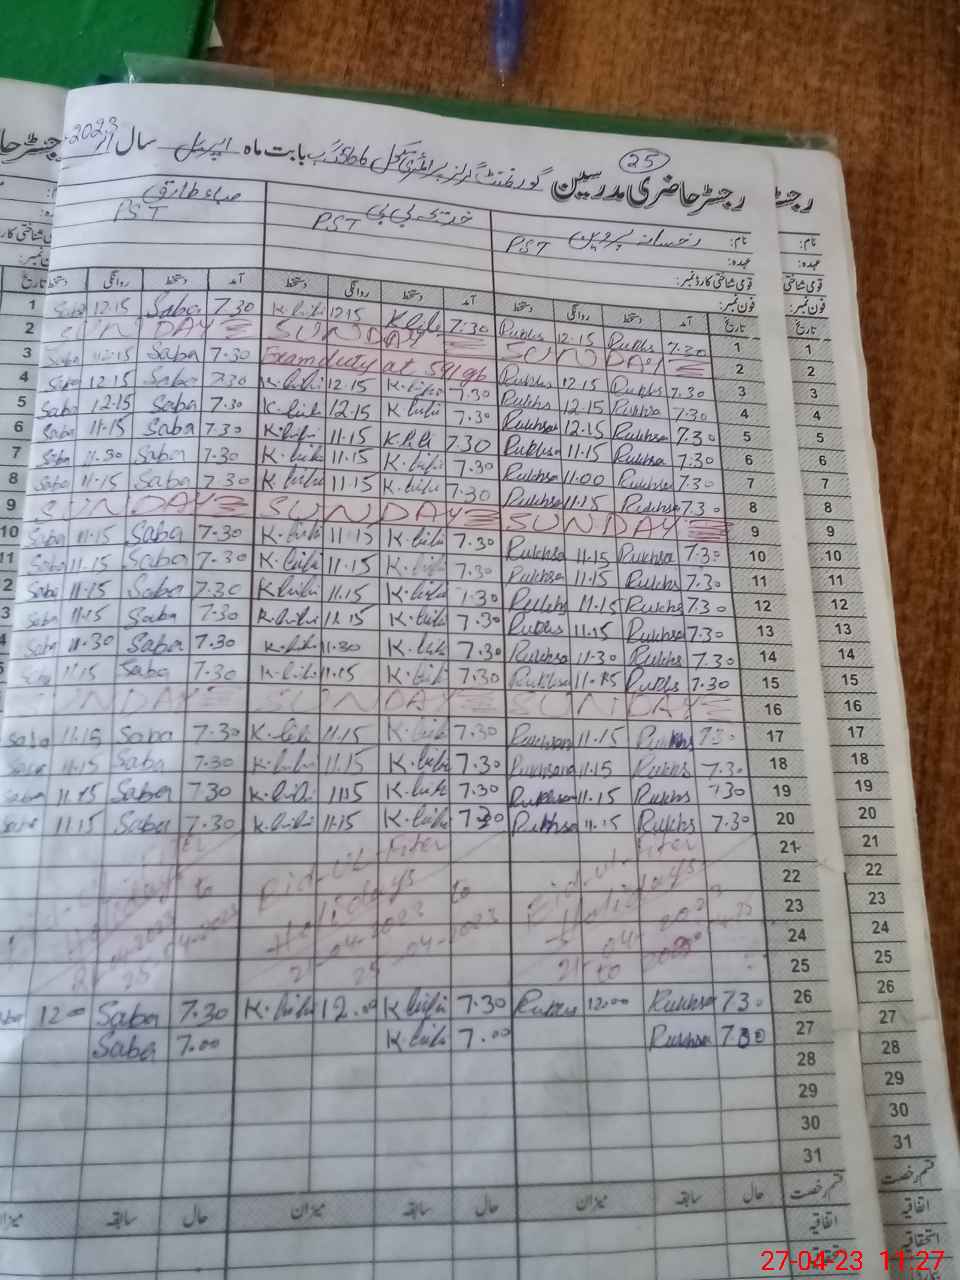 25
رجسٹر حاضری مدرسین گورنمنٹ گرلز پرائمری سکول 566 گ ب بابت ماہ اپریل سال 2023
نام: رخسانہ پروین خدیجہ بی بی صباء طارق
عہدہ: PST PST PST
قومی شناختی کارڈ نمبر:
فون نمبر:
تاریخ آمد دستخط روانگی دستخط آمد دستخط روانگی دستخط آمد دستخط روانگی دستخط تاریخ
1 Saba 12.15 Saba 7.30 K.bibi 12.15 7.30 Rukhs 12.15 Rukhs 7.30 1
2 SUNDAY SUNDAY SUNDAY 2
3 Saba 12.15 Saba 7.30 Exam duty at 591 gb Rukhs 12.15 Rukhs 7.30 3
4 Saba 12.15 Saba 7.30 K.bibi 12.15 K.bibi 7.30 Rukhs 12.15 Rukhsa 7.30 4
5 Saba 12.15 Saba 7.30 K.bibi 12.15 K.bibi 7.30 Rukhsa 12.15 Rukhsa 7.30 5
6 Saba 11.15 Saba 7.30 K.bibi 11.15 K.bibi 7.30 Rukhsa 11.15 Rukhsa 7.30 6
7 Saba 11.30 Saba 7.30 K.bibi 11.15 K.bibi 7.30 Rukhsa 11.00 Rukhsa 7.30 7
8 Saba 11.15 Saba 7.30 K.bibi 11.15 K.bibi 7.30 Rukhsa 11.15 Rukhsa 7.30 8
9 SUNDAY SUNDAY SUNDAY 9
10 Saba 11.15 Saba 7.30 K.bibi 11.15 K.bibi 7.30 Rukhsa 11.15 Rukhsa 7.30 10
11 Saba 11.15 Saba 7.30 K.bibi 11.15 K.bibi 7.30 Rukhsa 11.15 Rukhs 7.30 11
2 Saba 11.15 Saba 7.30 K.bibi 11.15 K.bibi 7.30 Rukhs 11.15 Rukhs 7.30 12
3 Saba 11.15 Saba 7.30 K.bibi 11.15 K.bibi 7.30 Rukhs 11.15 Rukhsa 7.30 13
4 Saba 11.30 Saba 7.30 K.bibi 11.30 K.bibi 7.30 Rukhsa 11.30 Rukhs 7.30 14
5 11.15 Saba 7.30 K.bibi 11.15 K.bibi 7.30 Rukhsa 11.15 Rukhs 7.30 15
SUNDAY SUNDAY SUNDAY 16
Saba 11.15 Saba 7.30 K.bibi 11.15 K.bibi 7.30 11.15 Rukhs 7.30 17
Saba 11.15 Saba 7.30 K.bibi 11.15 K.bibi 7.30 11.15 Rukhs 7.30 18
Saba 11.15 Saba 7.30 K.bibi 11.15 K.bibi 7.30 11.15 Rukhs 7.30 19
11.15 Saba 7.30 K.bibi 11.15 K.bibi 7.30 Rukhsa 11.15 Rukhs 7.30 20
Eid-Ul-Fiter Eid-Ul-Fiter 21
Holidays Holidays Holidays 22
to 21-04-2023 to 21-04-2023 23
25-04-2023 25-04-2023 to 24
25
12.00 Saba 7.30 K.bibi 12.00 K.bibi 7.30 12.00 Rukhsa 7.30 26
Saba 7.00 K.bibi 7.00 Rukhsa 7.30 27
28
29
30
31
قسم رخصت حال سابقہ میزان حال سابقہ میزان حال سابقہ میزان
اتفاقیہ
استحقاقیہ
27-04-23 11:27